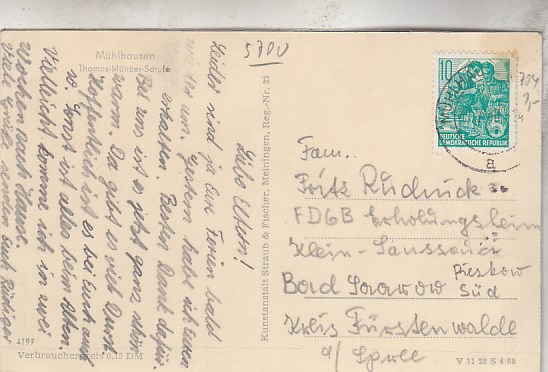 Mühlhausen
Thomas-Müntzer-Schule
5700
Liebe Eltern!
Leider sind ja Eure Ferien bald
um. Gestern habe ich Euren
erhalten. Besten Dank dafür.
Bei uns ist es jetzt ganz schön
warm. Da gibt es viel Durst.
Hoffentlich ist es bei Euch auch
so. Sonst ist alles beim Alten.
Vielleicht komme ich in zwei
Wochen nach Hause.
Viele Grüße senden Euch Rüdiger
4197
Verbraucherpreis 0,15 DM
Kunstanstalt Straub & Fischer, Meiningen, Reg.-Nr. 23
10
DEUTSCHE
DEMOKRATISCHE REPUBLIK
MÜHLHAUSEN
a
Fam.
Fritz Rudnick
FDGB Erholungsheim
Klein-Sanssouci
Pieskow
Bad Saarow Süd
Kreis Fürstenwalde
a/ Spree
V 11 28 S 4/68